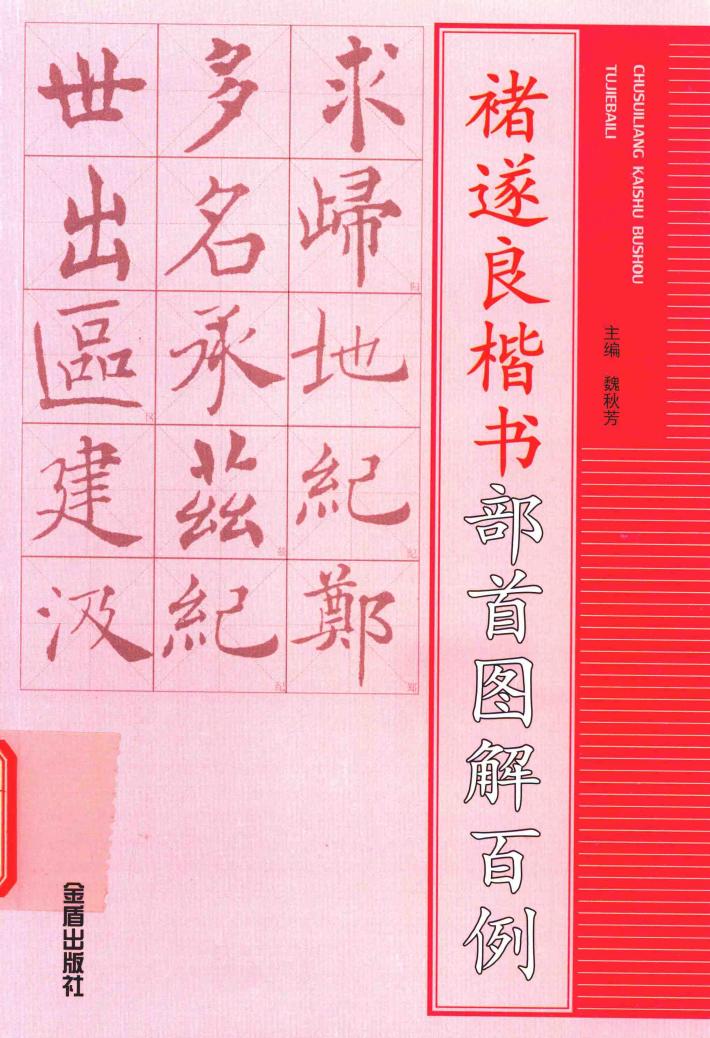 褚遂良楷书部首图解百例
CHUSUILIANG KAISHU BUSHOU
TUJIEBAILI
主编 魏秋芳
求歸地紀鄭
归
纪
郑
多名承茲紀
兹
纪
世出區建汲
区
金盾出版社